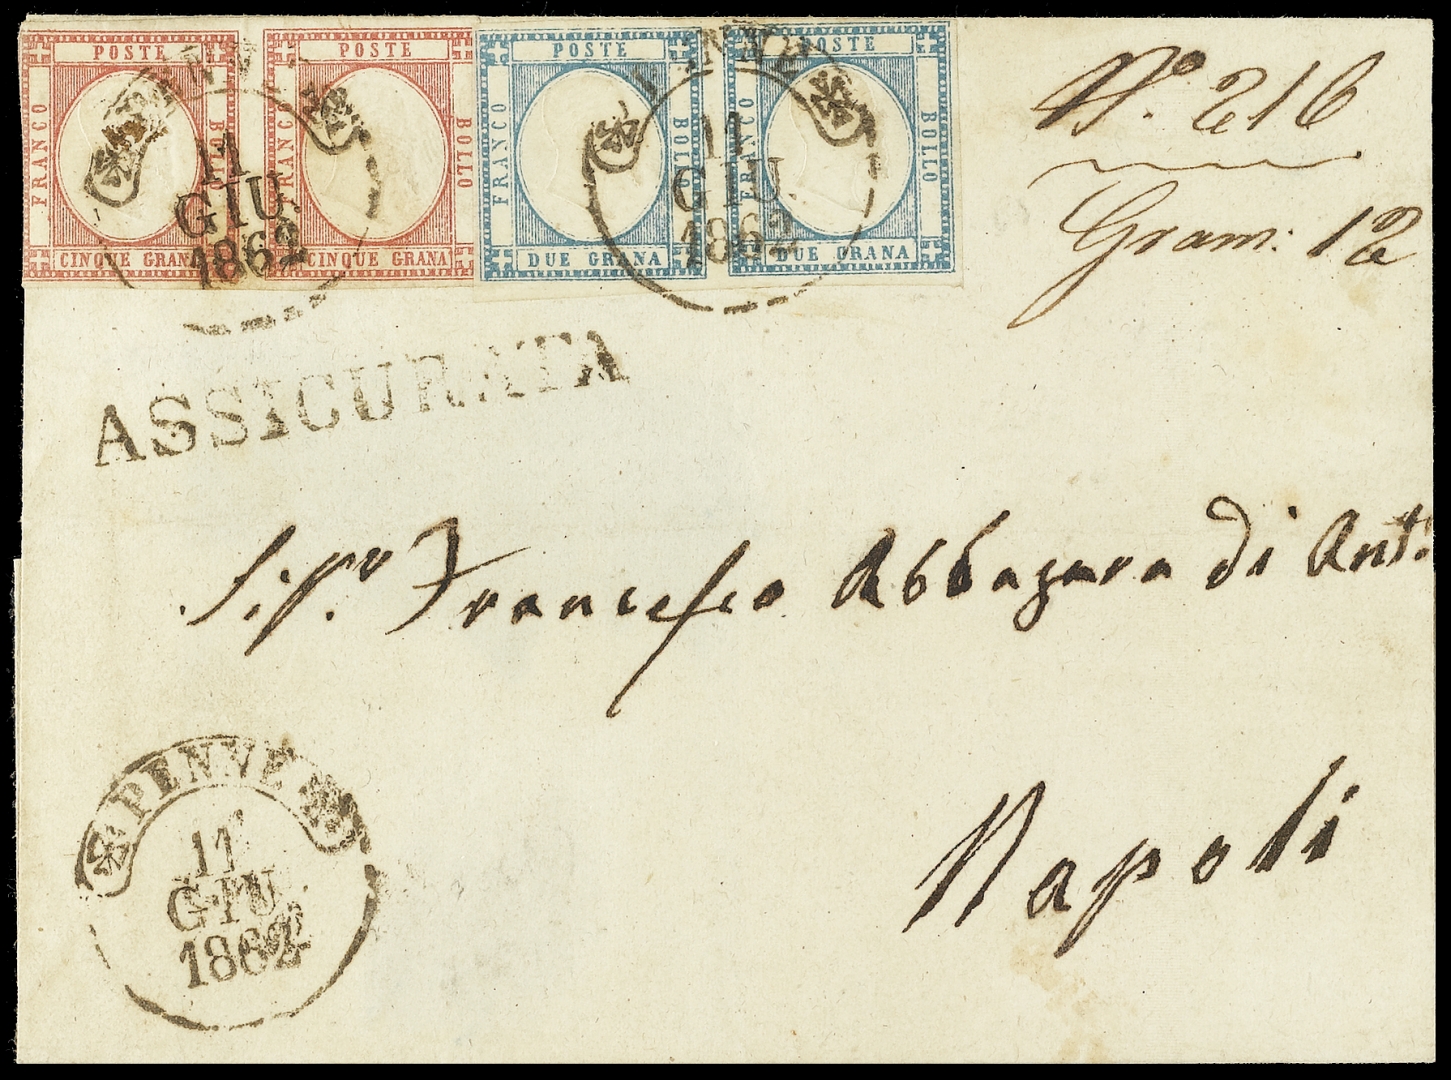 POSTE POSTE POSTE POSTE
FRANCO BOLLO FRANCO BOLLO FRANCO BOLLO FRANCO BOLLO
CINQUE GRANA CINQUE GRANA DUE GRANA DUE GRANA
PENNE
11
GIU
1862
PENNE
11
GIU
1862
N.º 216
Gram: 12
ASSICURATA
Sigr. Francesco Abbagara di Ant.
Napoli
PENNE
11
GIU
1862